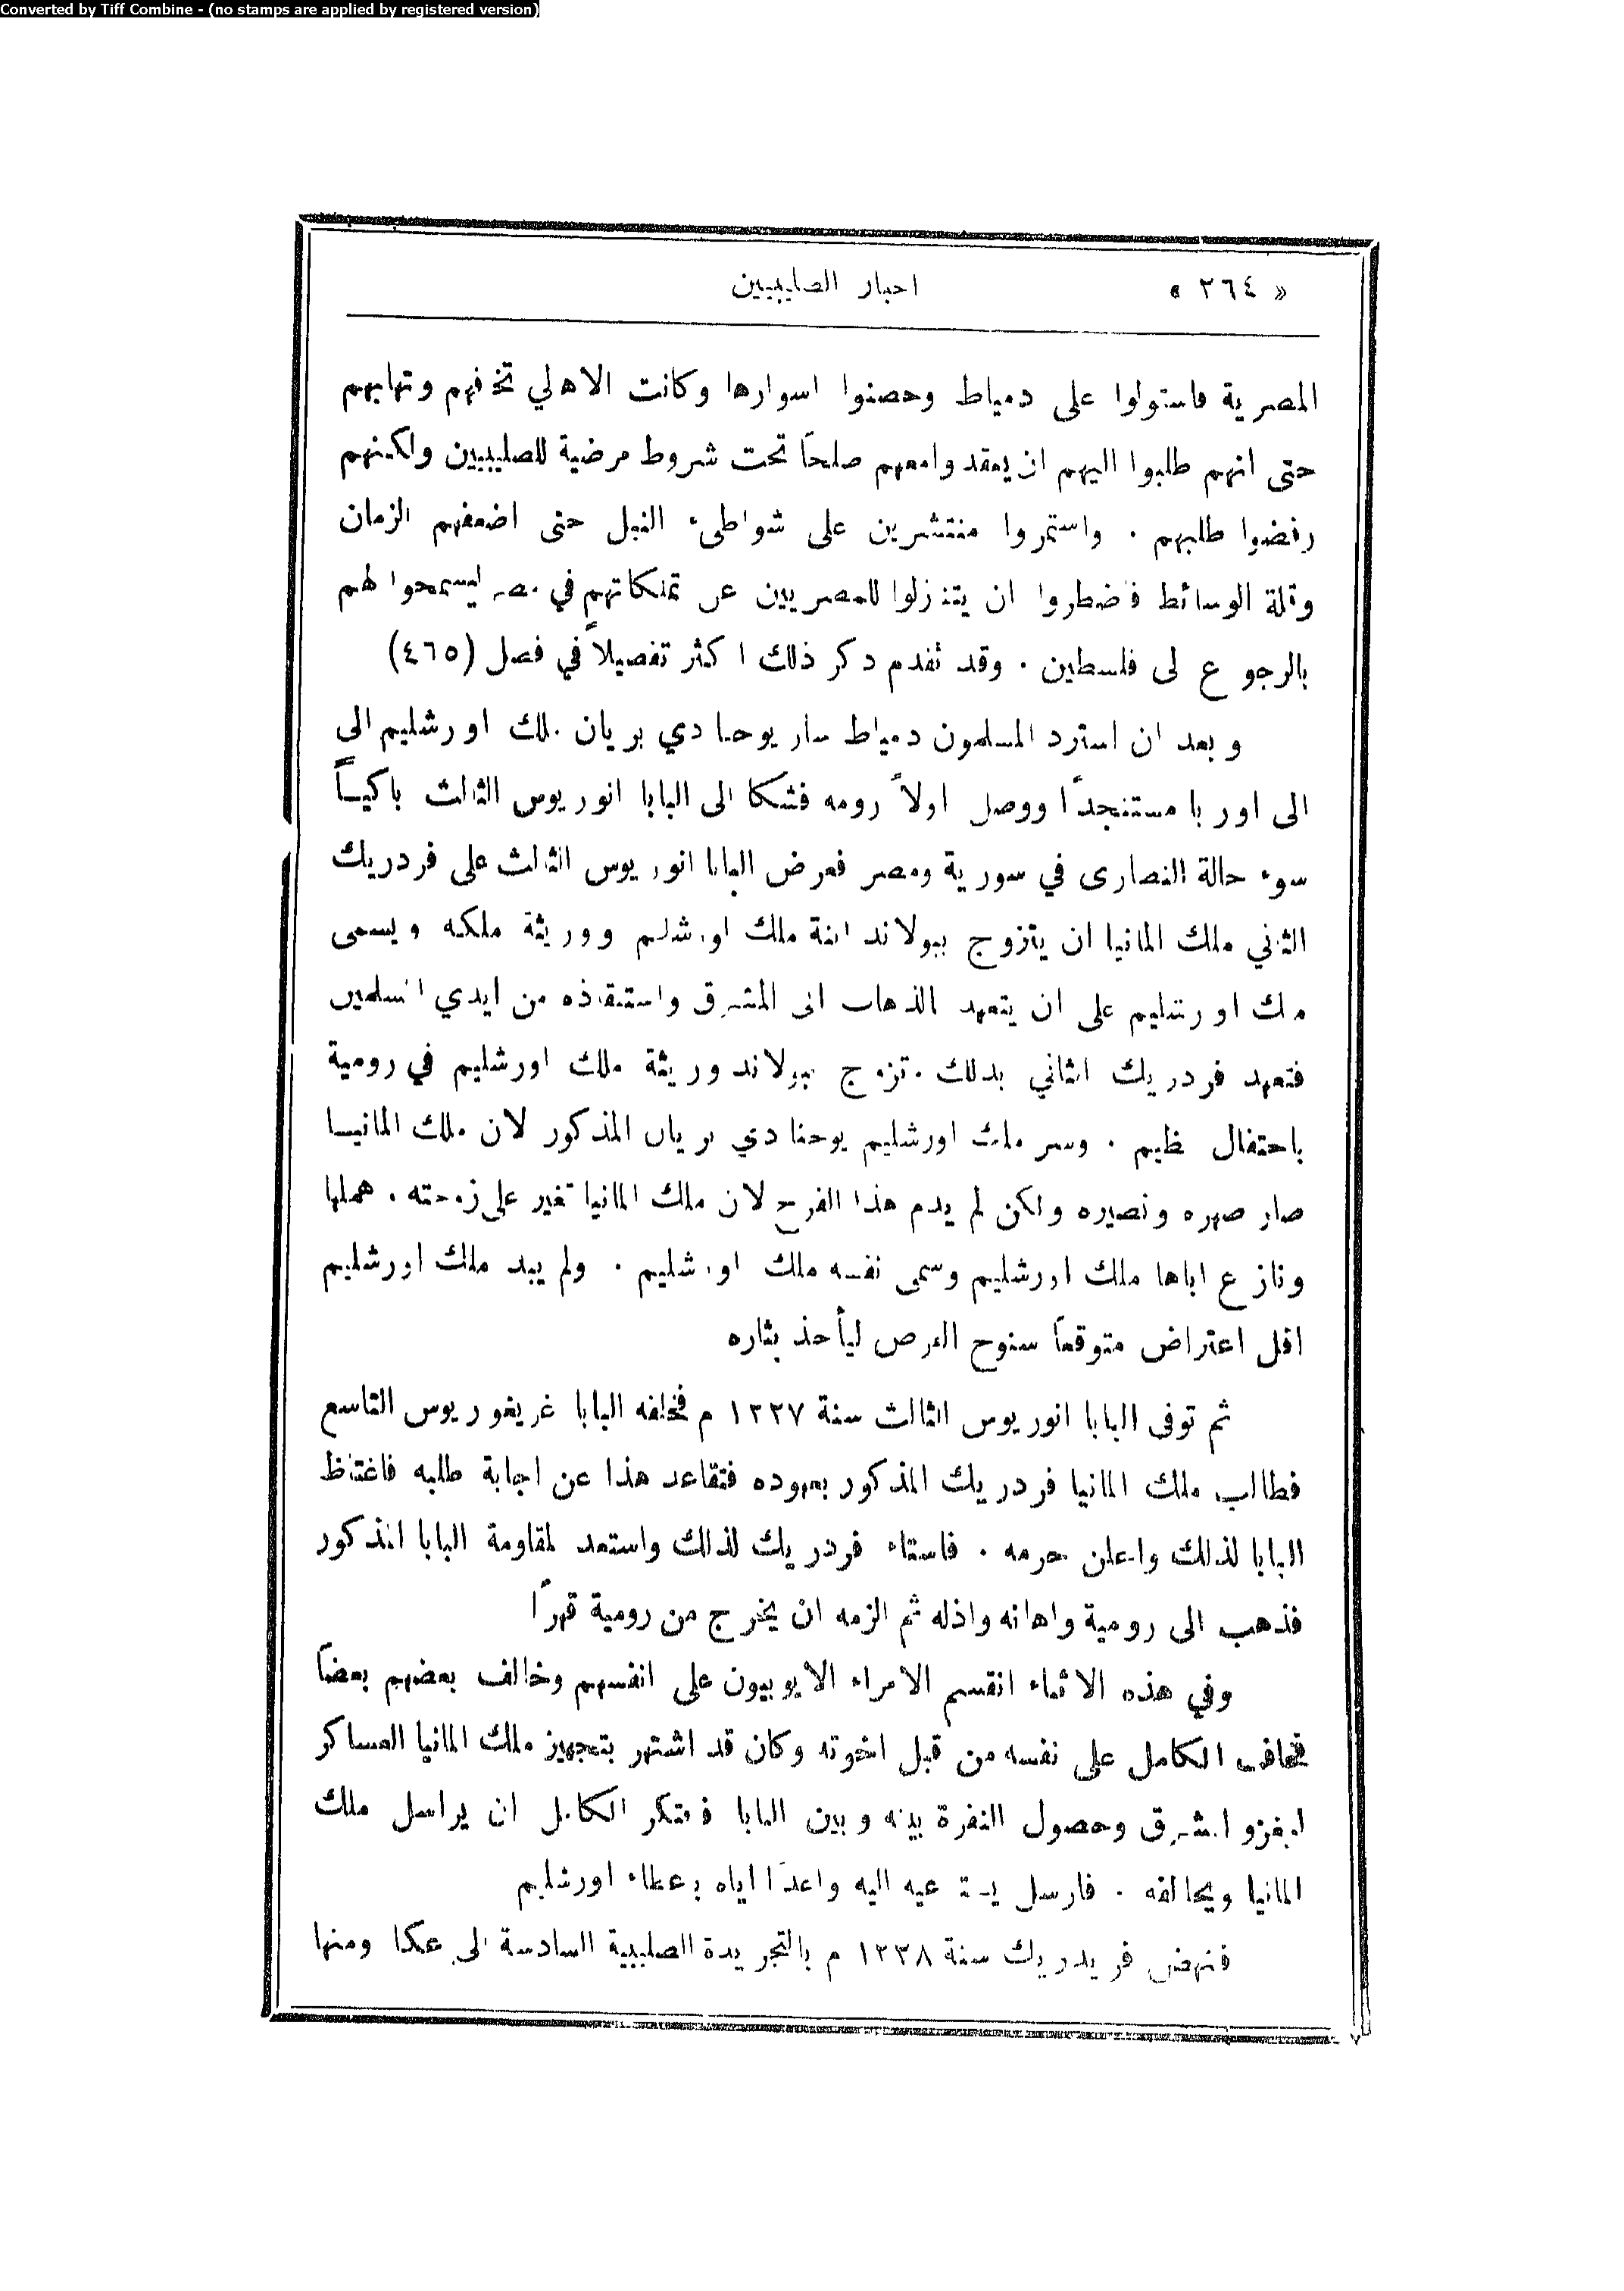 Converted by Tiff Combine - (no stamps are applied by registered version)
« ٢٦٤ » اخبار الصليبيين
المصرية فاستولوا على دمياط وحصنوا اسوارها وكانت الاهالي تخافهم وتهابهم
حتى انهم طلبوا اليهم ان يعقدوا معهم صلحاً تحت شروط مرضية للصليبيين ولكنهم
رفضوا طلبهم . واستمروا منتشرين على شواطىء النيل حتى اضعفهم الزمان
وقلة الوسائط فاضطروا ان يتنازلوا للمصريين عن تملكاتهم في مصر ليسمحوا لهم
بالرجوع الى فلسطين . وقد تقدم ذكر ذلك اكثر تفصيلاً في فصل (٤٦٥)
وبعد ان استرد المسلمون دمياط سار يوحنا دي بريان ملك اورشليم الى
الى اوربا مستنجداً ووصل اولاً رومه فشكا الى البابا انوريوس الثالث باكياً
سوء حالة النصارى في سورية ومصر فعرض البابا انوريوس الثالث على فردريك
الثاني ملك المانيا ان يتزوج بيولاند ابنة ملك اورشليم ووريثة ملكه ويسمى
ملك اورشليم على ان يتعهد بالذهاب الى المشرق واستنقاذه من ايدي المسلمين
فتعهد فردريك الثاني بذلك وتزوج بيولاند وريثة ملك اورشليم في رومية
باحتفال عظيم . وسر ملك اورشليم يوحنا دي بريان المذكور لان ملك المانيا
صار صهره ونصيره ولكن لم يدم هذا الفرح لان ملك المانيا تغير على زوجته واهملها
ونازع اباها ملك اورشليم وسمى نفسه ملك اورشليم . ولم يبد ملك اورشليم
اقل اعتراض متوقعاً سنوح الفرص ليأخذ بثاره
ثم توفى البابا انوريوس الثالث سنة ١٢٢٧ م فخلفه البابا غريغوريوس التاسع
فطالب ملك المانيا فردريك المذكور بعهوده فتقاعد هذا عن اجابة طلبه فاغتاظ
البابا لذلك واعلن حرمه . فاستاء فردريك لذلك واستعد لمقاومة البابا المذكور
فذهب الى رومية واهانه واذله ثم الزمه ان يخرج من رومية قهراً
وفي هذه الاثناء انقسم الامراء الايوبيون على انفسهم وخالف بعضهم بعضاً
فخاف الكامل على نفسه من قبل اخوته وكان قد اشتهر بتجهيز ملك المانيا العساكر
ليغزو المشرق وحصول النفرة بينه وبين البابا فافتكر الكامل ان يراسل ملك
المانيا ويحالفه . فارسل يستدعيه اليه واعداً اياه باعطاء اورشليم
فنهض فريدريك سنة ١٢٢٨ م بالتجريدة الصليبية السادسة الى عكا ومنها